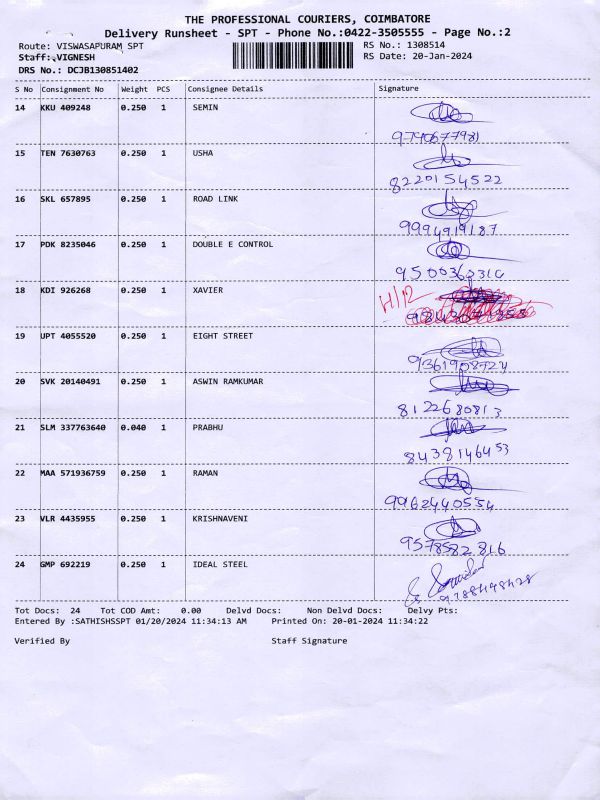 THE PROFESSIONAL COURIERS, COIMBATORE
Delivery Runsheet - SPT - Phone No.:0422-3505555 - Page No.:2
Route: VISWASAPURAM SPT RS No.: 1308514
Staff: VIGNESH RS Date: 20-Jan-2024
DRS No.: DCJB130851402
S No Consignment No Weight PCS Consignee Details Signature
14 KKU 409248 0.250 1 SEMIN
15 TEN 7630763 0.250 1 USHA
8220154522
16 SKL 657895 0.250 1 ROAD LINK
9994919187
17 PDK 8235046 0.250 1 DOUBLE E CONTROL
18 KDI 926268 0.250 1 XAVIER
19 UPT 4055520 0.250 1 EIGHT STREET
20 SVK 20140491 0.250 1 ASWIN RAMKUMAR
8122680813
21 SLM 337763640 0.040 1 PRABHU
8438146453
22 MAA 571936759 0.250 1 RAMAN
9962440554
23 VLR 4435955 0.250 1 KRISHNAVENI
9578582816
24 GMP 692219 0.250 1 IDEAL STEEL
Tot Docs: 24 Tot COD Amt: 0.00 Delvd Docs: Non Delvd Docs: Delvy Pts:
Entered By :SATHISHSSPT 01/20/2024 11:34:13 AM Printed On: 20-01-2024 11:34:22
Verified By Staff Signature